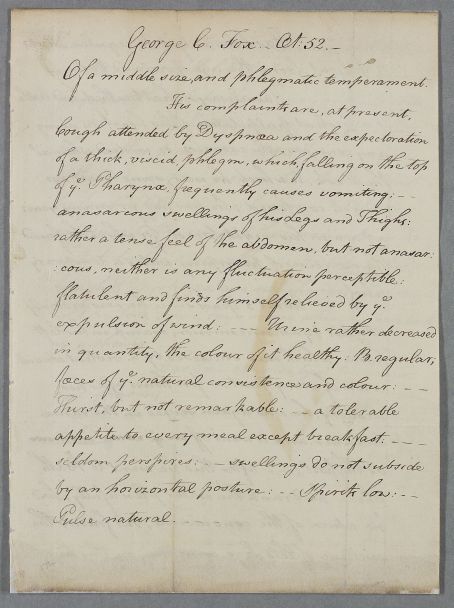 George C. Fox. Æt. 52. —
Of a middle size, and phlegmatic temperament.
His complaints are, at present,
Cough attended by Dyspnœa and the expectoration
of a thick, viscid, phlegm, which, falling on the top
of yᵉ. Pharynx, frequently causes vomiting: —
anasarcous swellings of his Legs and Thighs:
rather a tense feel of the abdomen, but not anasar:
:cous, neither is any fluctuation perceptible:
flatulent and finds himself relieved by yᵉ.
expulsion of wind: — — Urine rather decreased
in quantity, the colour of it healthy: B. regular,
fæces of yᵉ. natural consistence and colour: — —
Thirst, but not remarkable: — a tolerable
appetite to every meal except breakfast. — — —
seldom perspires: — swellings do not subside
by an horizontal posture: — — Spirits low: — —
Pulse natural.